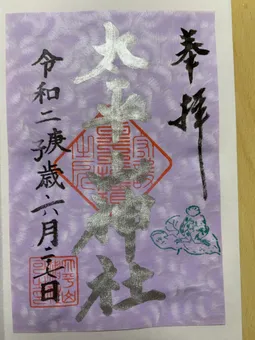 奉拝
太平山神社
令和二庚子歳六月
日